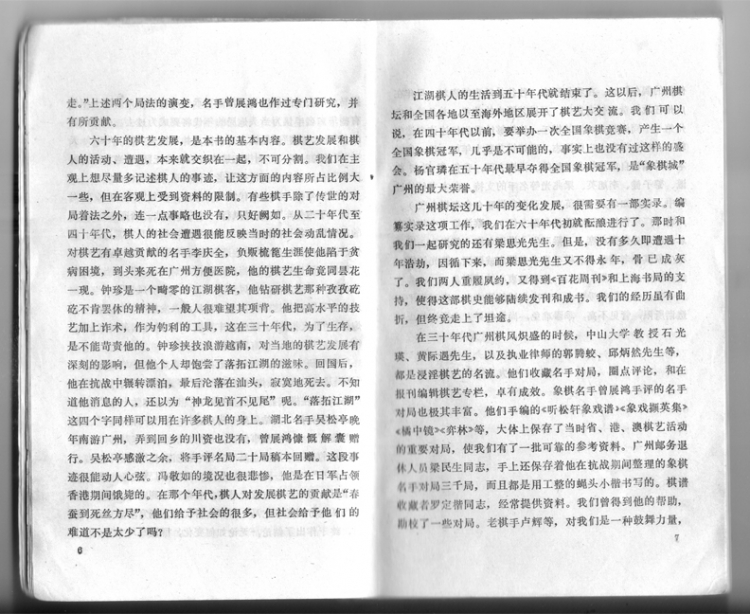 走。”上述两个局法的演变，名手曾展鸿也作过专门研究，并
有所贡献。
六十年的棋艺发展，是本书的基本内容。棋艺发展和棋
人的活动、遭遇，本来就交织在一起，不可分割。我们在主
观上想尽量多记述棋人的事迹，让这方面的内容所占比例大
一些，但在客观上受到资料的限制。有些棋手除了传世的对
局着法之外，连一点事略也没有，只好阙如。从二十年代至
四十年代，棋人的社会遭遇很能反映当时的社会动乱情况。
对棋艺有卓越贡献的名手李庆全，负贩梳篦生涯使他陷于贫
病困境，到头来死在广州方便医院，他的棋艺生命竟同昙花
一现。钟珍是一个畸零的江湖棋客，他钻研棋艺那种孜孜矻
矻不肯罢休的精神，一般人很难望其项背。他把高水平的技
艺加上诈术，作为钓利的工具，这在三十年代，为了生存，
是不能苛责他的。钟珍挟技浪游越南，对当地的棋艺发展有
深刻的影响，但他个人却饱尝了落拓江湖的滋味。回国后，
他在抗战中辗转漂泊，最后沦落在汕头，寂寞地死去。不知
道他消息的人，还以为“神龙见首不见尾”呢。“落拓江湖”
这四个字同样可以用在许多棋人的身上。湖北名手吴松亭晚
年南游广州，弄到回乡的川资也没有，曾展鸿慷慨解囊赠
行。吴松亭感激之余，将手评名局二十局稿本回赠。这段事
迹很能动人心弦。冯敬如的境况也很悲惨，他是在日军占领
香港期间饿毙的。在那个年代，棋人对发展棋艺的贡献是“春
蚕到死丝方尽”，他们给予社会的很多，但社会给予他们的
难道不是太少了吗？
6
江湖棋人的生活到五十年代就结束了。这以后，广州棋
坛和全国各地以至海外地区展开了棋艺大交流。我们可以
说，在四十年代以前，要举办一次全国象棋竞赛，产生一个
全国象棋冠军，几乎是不可能的，事实上也没有过这样的盛
会。杨官璘在五十年代最早夺得全国象棋冠军，是“象棋城”
广州的最大荣誉。
广州棋坛这几十年的变化发展，很需要有一部实录。编
纂实录这项工作，我们在六十年代初就酝酿进行了。那时和
我们一起研究的还有梁思光先生。但是，没有多久即遭遇十
年浩劫，因循下来，而梁思光先生又不得永年，骨已成灰
了。我们两人重履夙约，又得到《百花周刊》和上海书局的支
持，使得这部棋史能够陆续发刊和成书。我们的经历虽有曲
折，但终竟走上了坦途。
在三十年代广州棋风炽盛的时候，中山大学教授石光
瑛、黄际遇先生，以及执业律师的郭腾蛟、邱炳然先生等，
都是浸淫棋艺的名流。他们收藏名手对局，圈点评论，和在
报刊编辑棋艺专栏，卓有成效。象棋名手曾展鸿手评的名手
对局也极其丰富。他们手编的《听松轩象戏谱》《象戏撷英集》
《橘中镜》《弈林》等，大体上保存了当时省、港、澳棋艺活动
的重要资料，使我们有了一批可靠的参考资料。广州邮务退
休人员梁民生同志，手上还保存着他在抗战期间整理的象棋
名手对局三千局，而且都是用工整的蝇头小楷书写的。棋谱
收藏者罗定楷同志，经常提供资料。我们曾得到他的帮助，
勘校了一些对局。老棋手卢辉等，对我们是一种鼓舞力量，
7